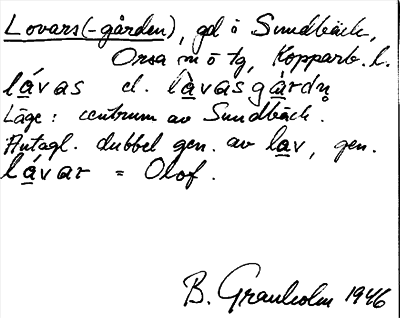 Lovars(-gården), gd i Sundbäck,
Orsa sn o tg, Kopparb. l.
lávas el. lávasgárdn̥
Läge: centrum av Sundbäck.
Antagl. dubbel gen. av lav, gen.
lávar = Olof.
B. Granholm 1946